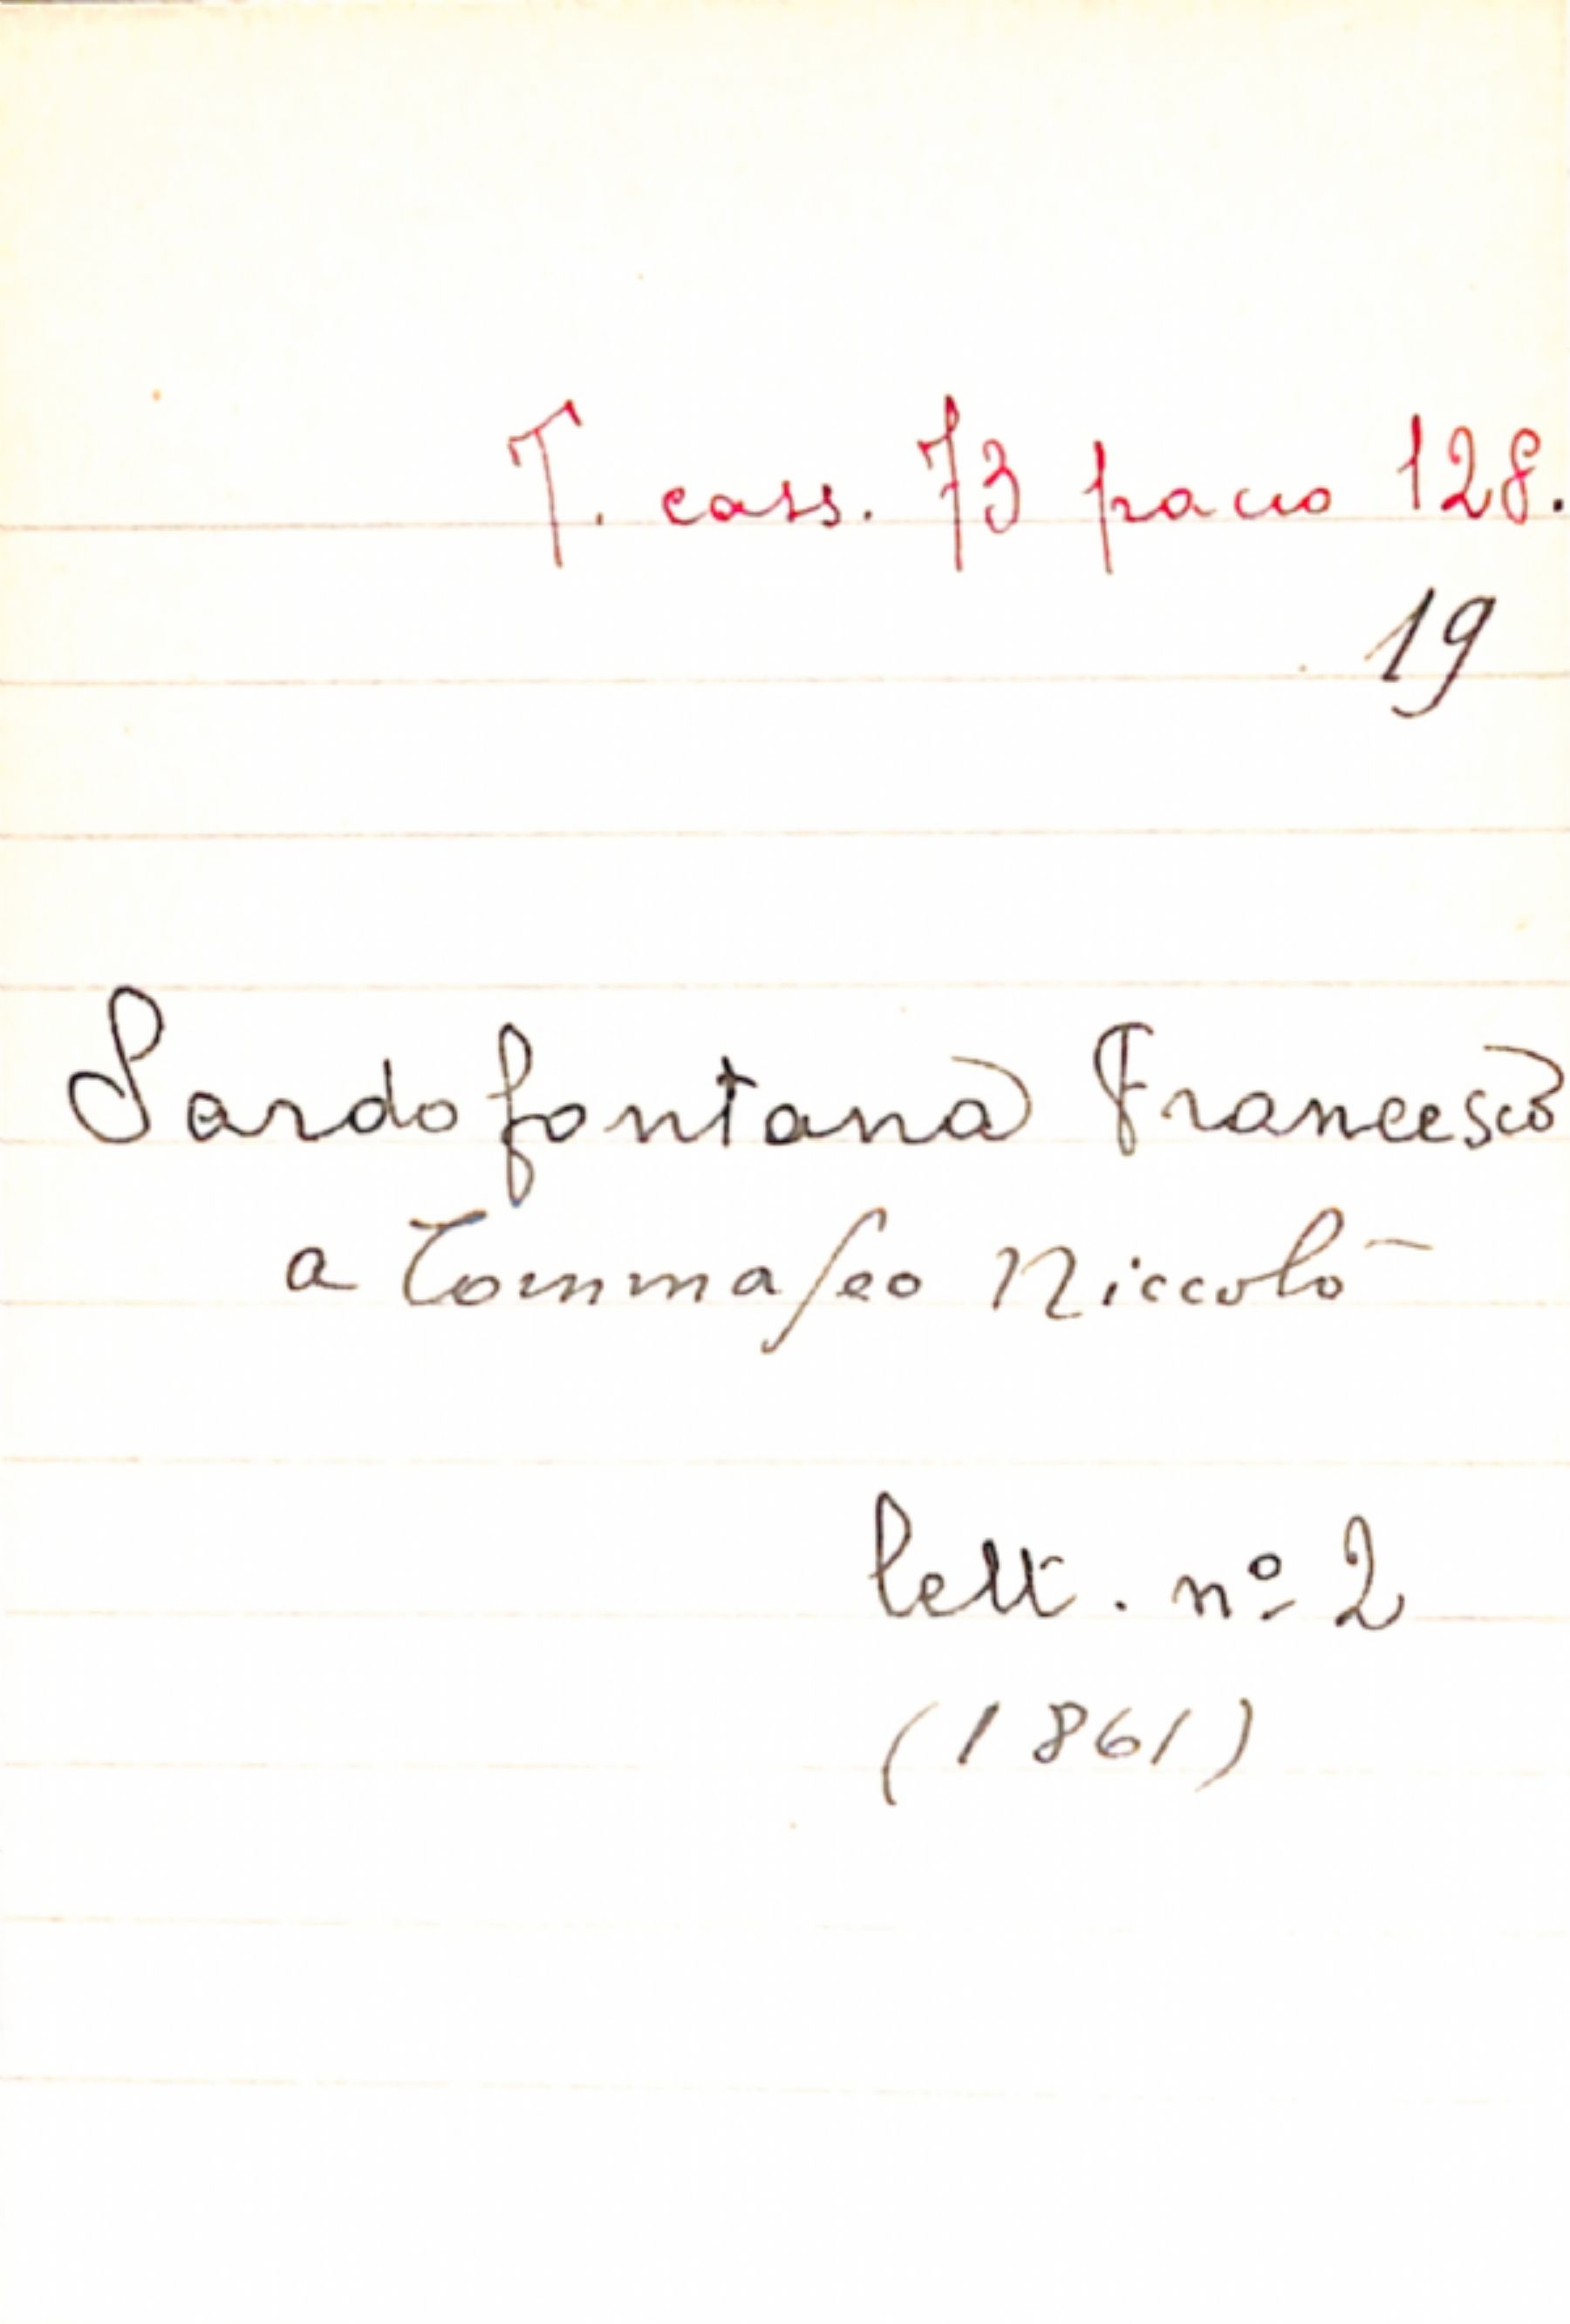 T. cass. 73 pacco 128.
19
Sardofontana Francesco
a Tommaseo Niccolò
lett. nº 2
(1861)